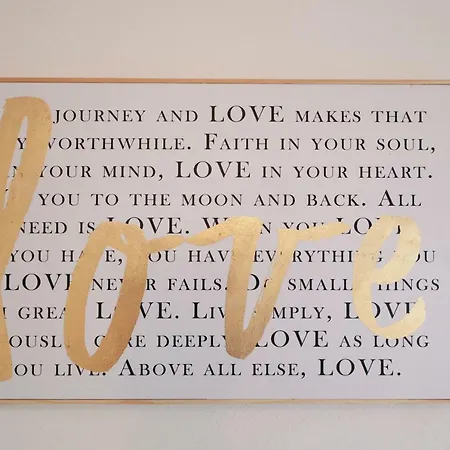 love
JOURNEY AND LOVE MAKES THAT
Y WORTHWHILE. FAITH IN YOUR SOUL,
IN YOUR MIND, LOVE IN YOUR HEART.
YOU TO THE MOON AND BACK. ALL
NEED IS LOVE. WHEN YOU LOVE
YOU HAVE, YOU HAVE EVERYTHING YOU
LOVE NEVER FAILS. DO SMALL THINGS
GREAT LOVE. LIVE SIMPLY, LOVE
OUSLY, CARE DEEPLY, LOVE AS LONG
OU LIVE. ABOVE ALL ELSE, LOVE.